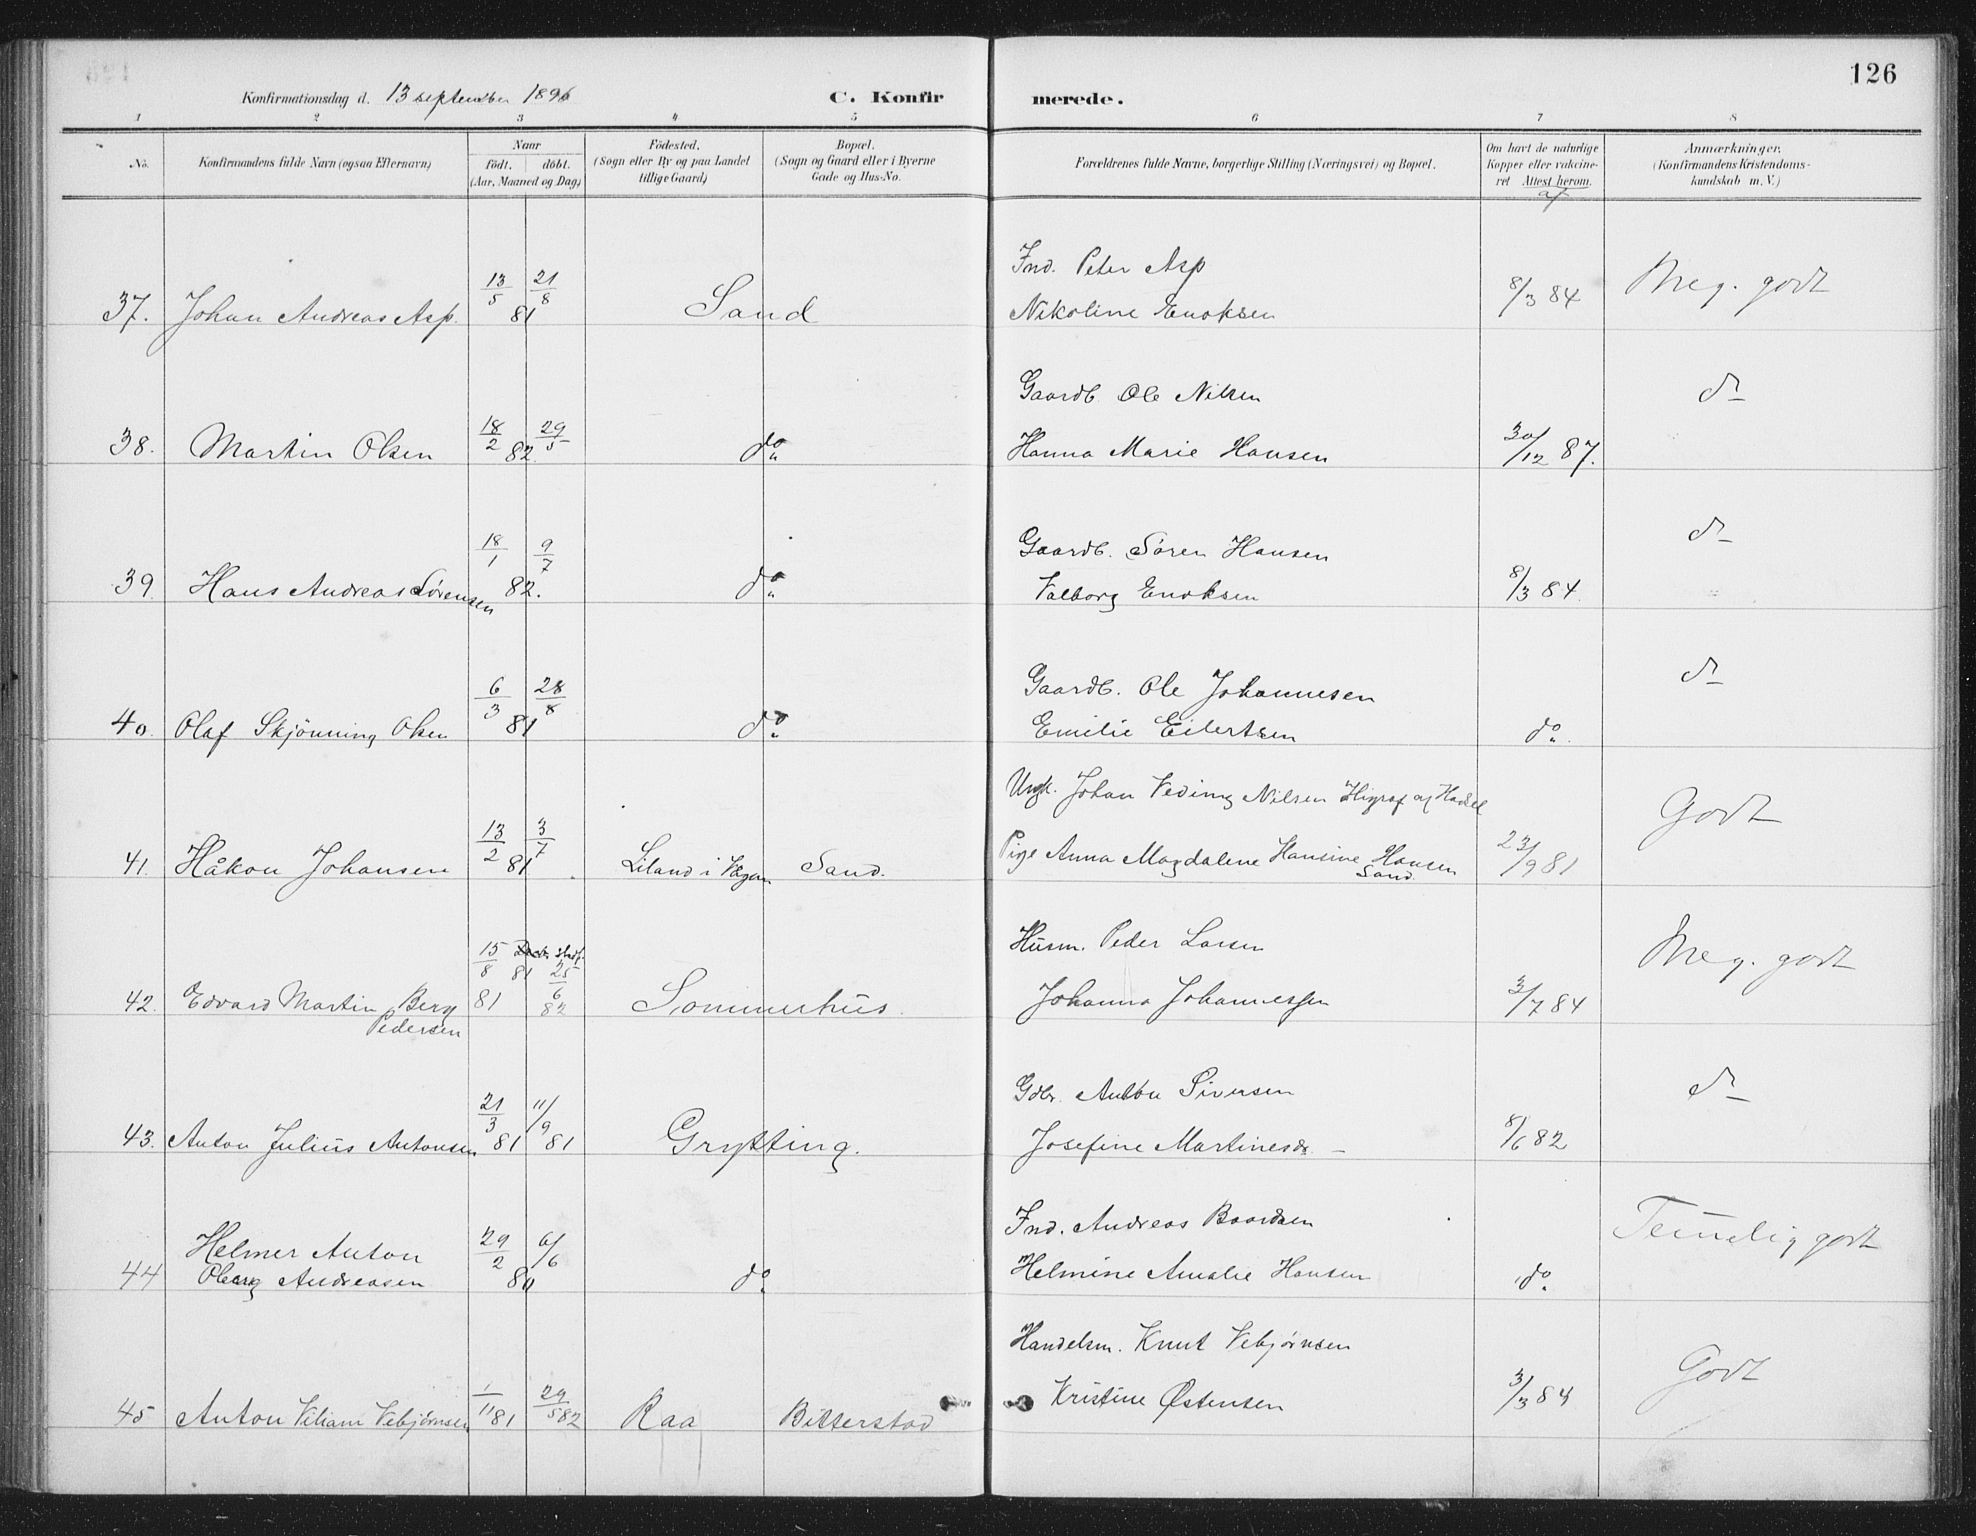 126
Konfirmationsdag d. 13 september 1896 C. Konfirmerede.
1 2 3 4 5 6 7 8
No. Konfirmandens fulde Navn (ogsaa Efternavn) Naar født. døbt. (Aar, Maaned og Dag) Fødested. (Sogn eller By og paa Landet tillige Gaard) Bopæl. (Sogn og Gaard eller i Byerne Gade og Hus-No. Forældrenes fulde Navne, borgerlige Stilling (Næringsvei) og Bopæl. Om havt de naturlige Kopper eller vakcineret Attest herom. af Anmærkninger. (Konfirmandens Kristendomskundskab m. V.)
37. Johan Andreas Asp. 13/5 21/8 81 Sand Ind. Peter Asp
Nikoline Enoksen 8/3 84 Meg. godt
38. Martin Olsen 18/2 29/5 82. do Gaardb. Ole Nilsen
Hanna Marie Hansen 30/12 87. do
39. Hans Andreas Sørensen 18/1 9/7 82. do Gaardb. Søren Hansen
Valborg Enoksen 8/3 84. do
40. Olaf Skjønning Olsen 6/3 28/8 81 do Gaardb. Ole Johannesen
Emilie Eilertsen do. do
41. Håkon Johansen 13/2 3/7 81 Liland i Vågan Sand. Ungk. Johan Veding Nilsen af Hadsel
Pige Anna Magdalene Hansine Hansen
Sand 23/9 81 Godt
42. Edvard Martin Berg
Pedersen 15/8 81 25/6 82 81 Sommerhus. Husm. Peder Larsen
Johanna Johannessen 3/7 84 Meg. godt
43. Anton Julius Antonsen 21/3 81 11/9 81 Grytting. Gdbr. Anton Siversen
Josefine Martinesdr. 8/6 82 do
44 Helmer Anton
Oberg Andreasen 29/2 6/6 80 do Ind. Andreas Baardsen
Helmine Amalie Hansen do Temelig godt
45 Anton Viliam Vebjørnsen 1/11 81 29/5 82 Raa Bitterstad Handelsm. Knut Vebjørnsen
Kristine Østensen 3/3 84 Godt